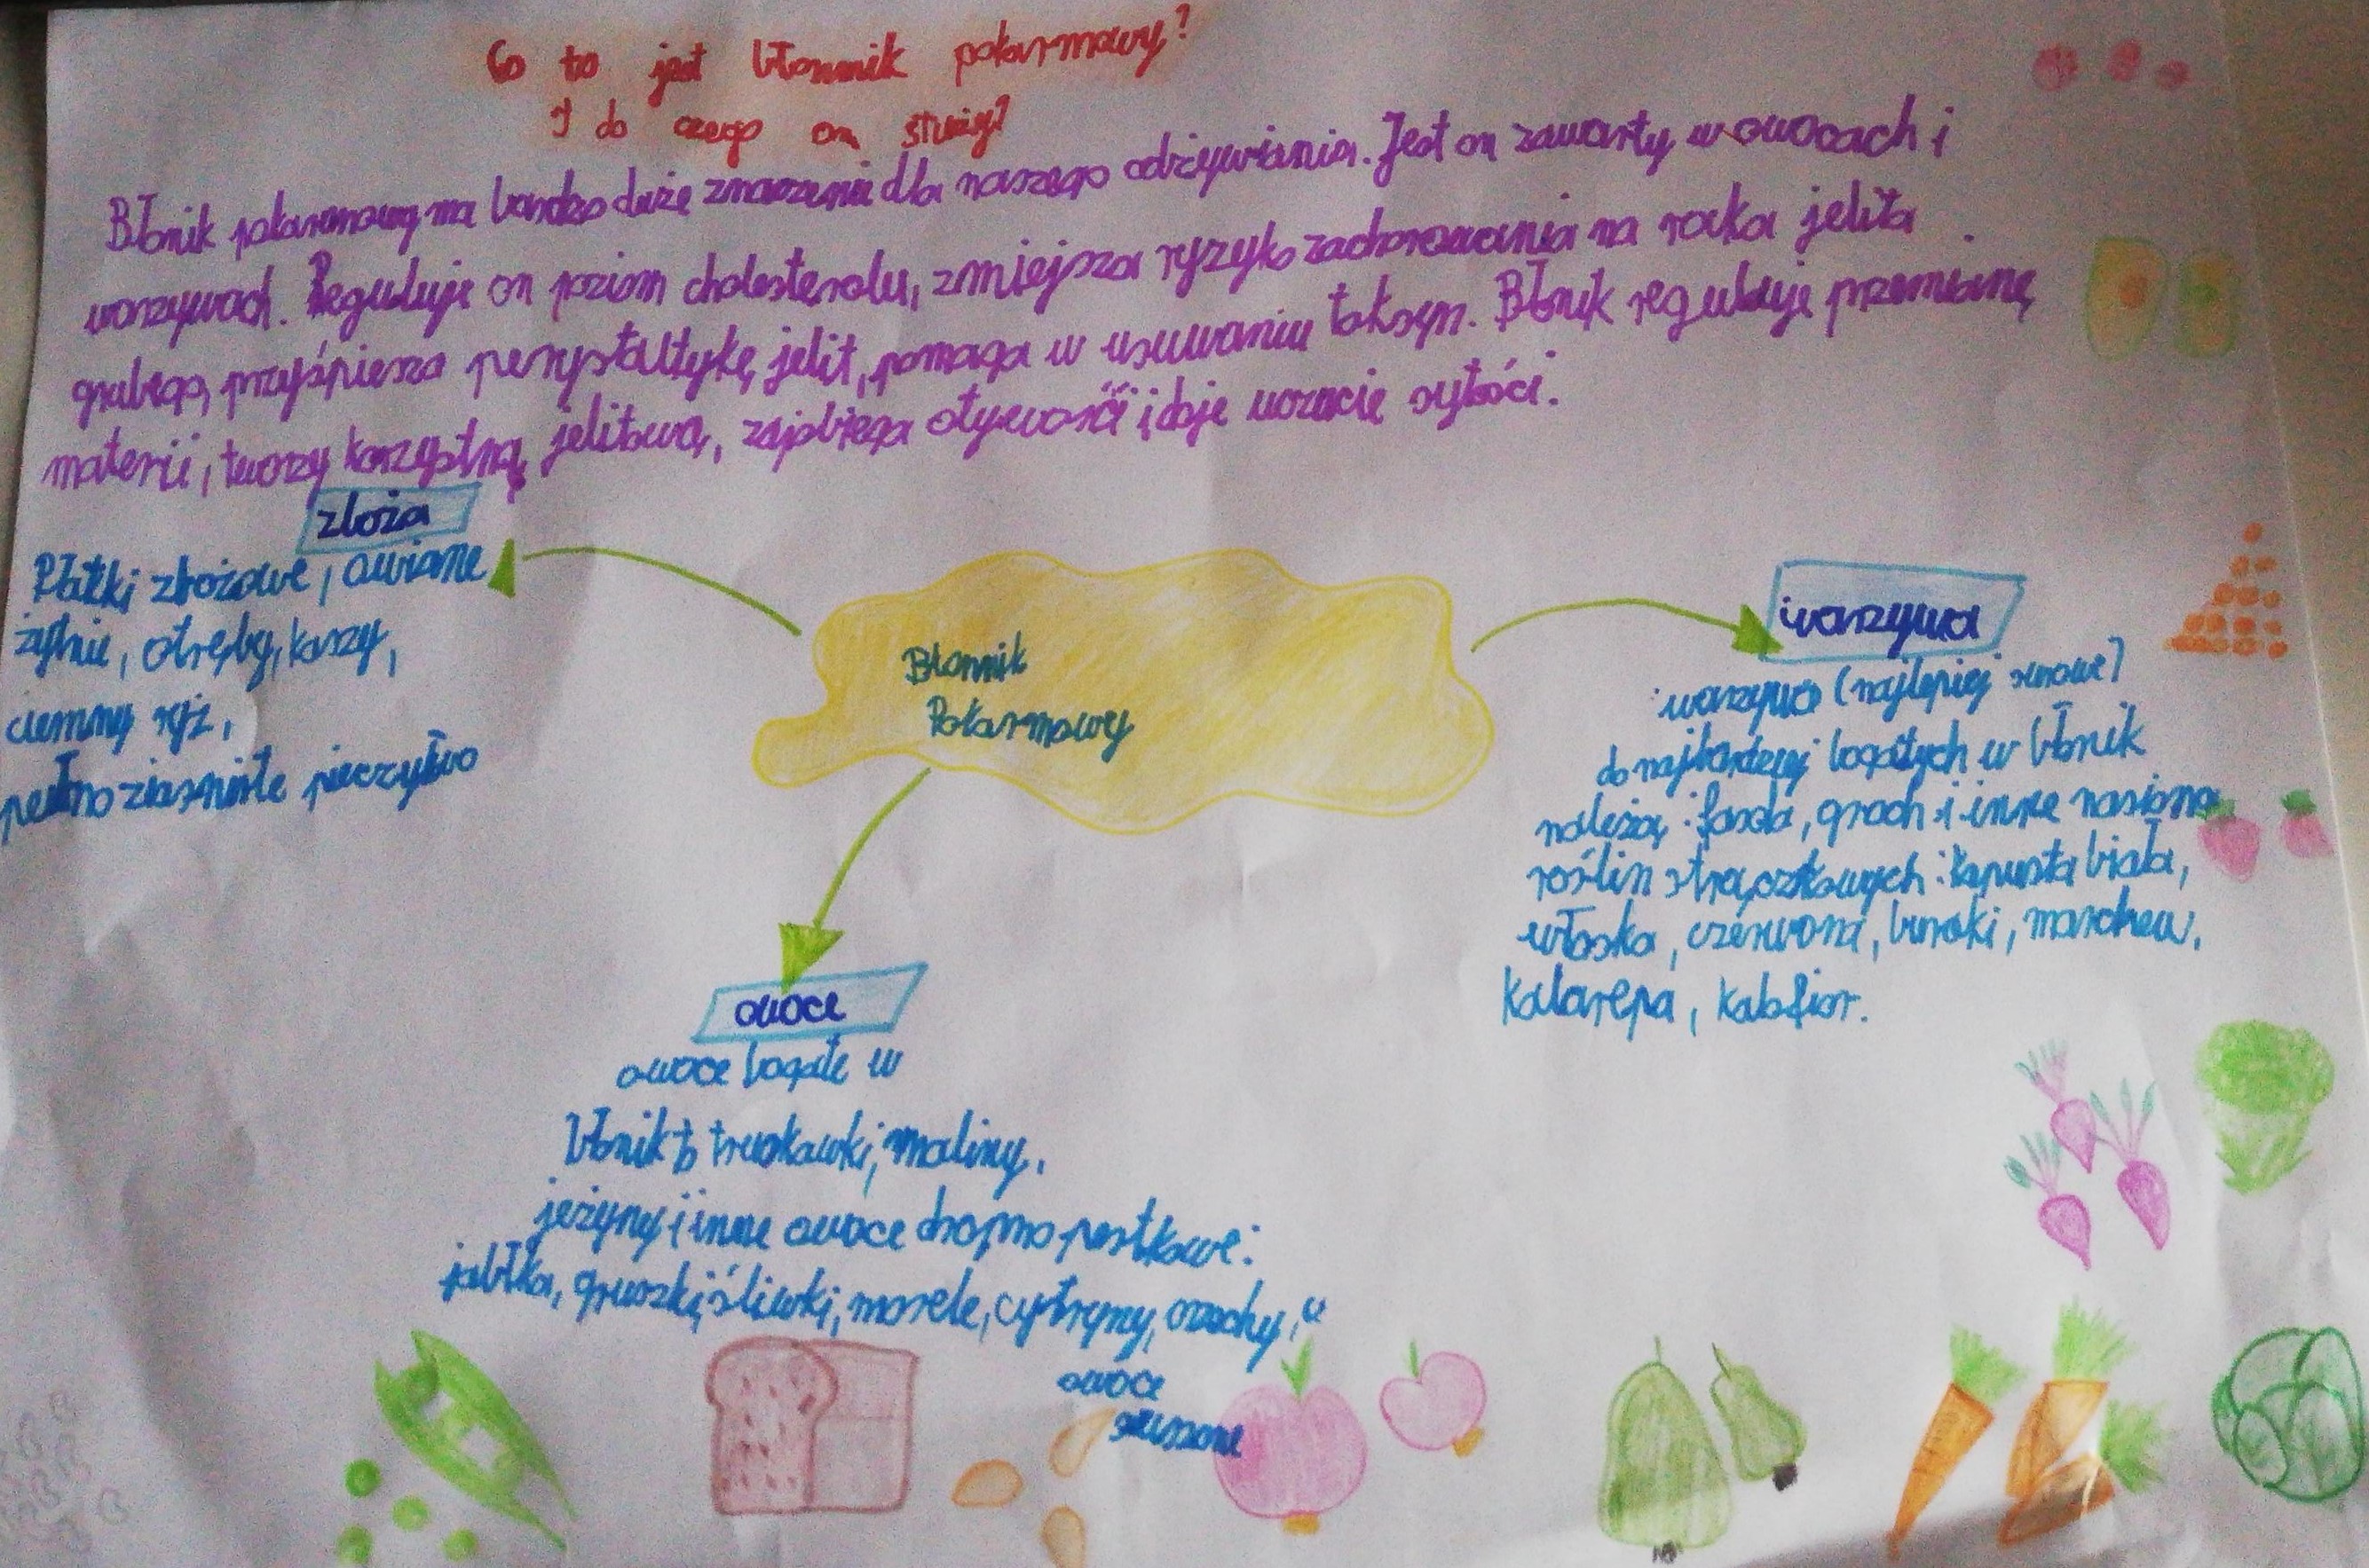 Co to jest błonnik pokarmowy?
I do czego on służy?
Błonik pokarmowy ma bardzo duże znaczenie dla naszego odżywiania. Jest on zawarty w owocach i
warzywach. Reguluje on poziom cholesterolu, zmiejsza ryzyko zachorowania na raka jelita
grubego, przyśpiesza perystaltykę jelit, pomaga w usuwaniu toksyn. Błonik reguluje przemianę
materii, tworzy korzystną jelitową, zapobiega otywości i daje uczucie sytości.
zboża
Płatki zbożowe, owsiane
żytnie, otręby, kaszy,
ciemny ryż,
pełnoziarniste pieczywo
Błonnik
Pokarmowy
warzywa
warzywa (najlepiej surowe)
do najbardziej bogatych w błonik
należą: fasola, groch i inne nasiona
roślin strączkowych: kapusta biała,
włoska, czerwona, buraki, marchew,
kalarepa, kalafior.
owoce
owoce bogate w
błonik to truskawki, maliny,
jeżyny i inne owoce drobno pestkowe:
jabłka, gruszki, śliwki, morele, cytryny, orzechy,
owoce
suszone